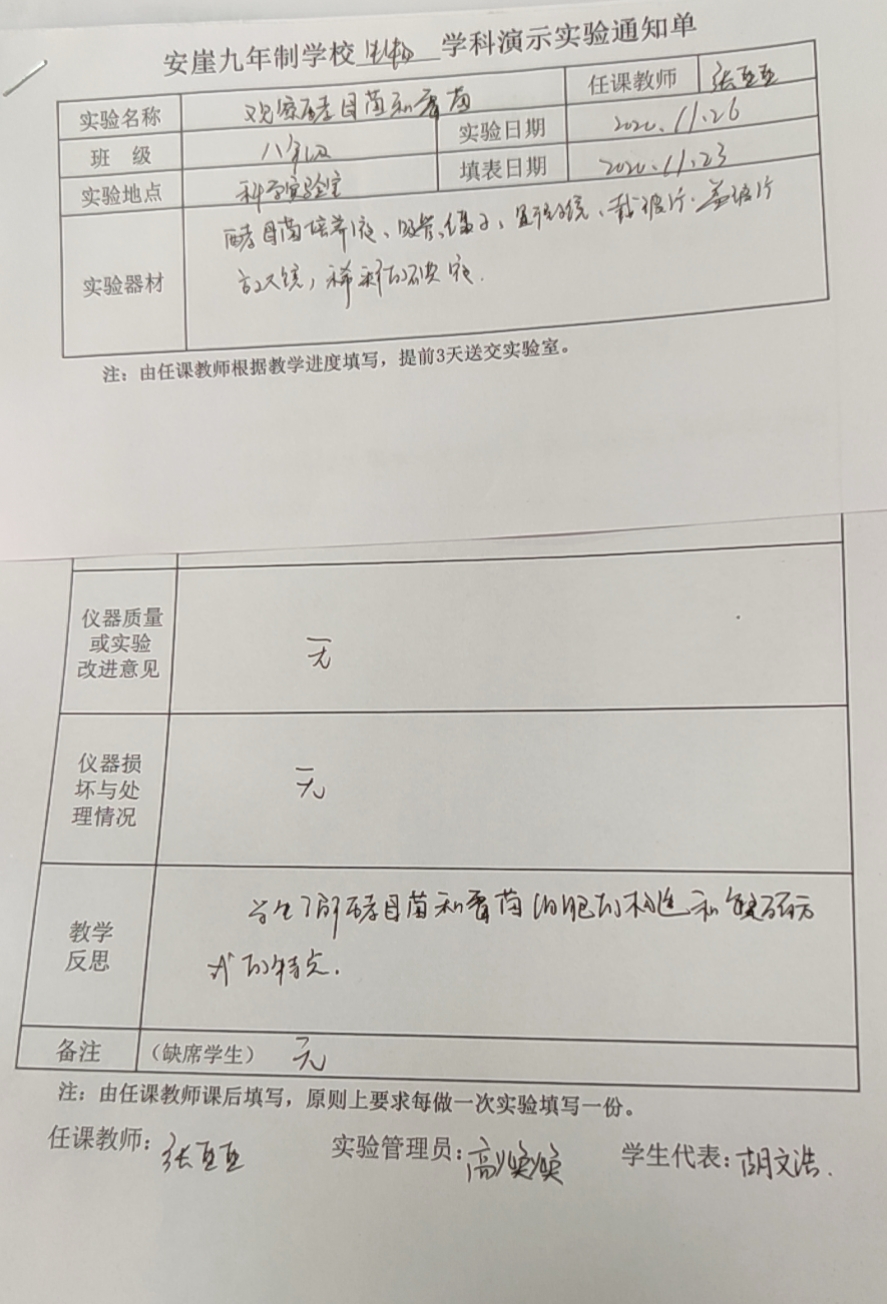 安崖九年制学校 生物 学科演示实验通知单
实验名称 观察酵母菌和霉菌 任课教师 张亚亚
班 级 八年级 实验日期 2020.11.26
实验地点 科学实验室 填表日期 2020.11.23
实验器材 酵母菌培养液、吸管、镊子、显微镜、载玻片、盖玻片
放大镜,稀释的碘液.
注:由任课教师根据教学进度填写,提前3天送交实验室。
仪器质量
或实验
改进意见
无
仪器损
坏与处
理情况
无
教学
反思
学生了解酵母菌和霉菌细胞的构造和繁殖方
式的特点.
备注 (缺席学生) 无
注:由任课教师课后填写,原则上要求每做一次实验填写一份。
任课教师:张亚亚 实验管理员:高焕焕 学生代表:胡文浩.